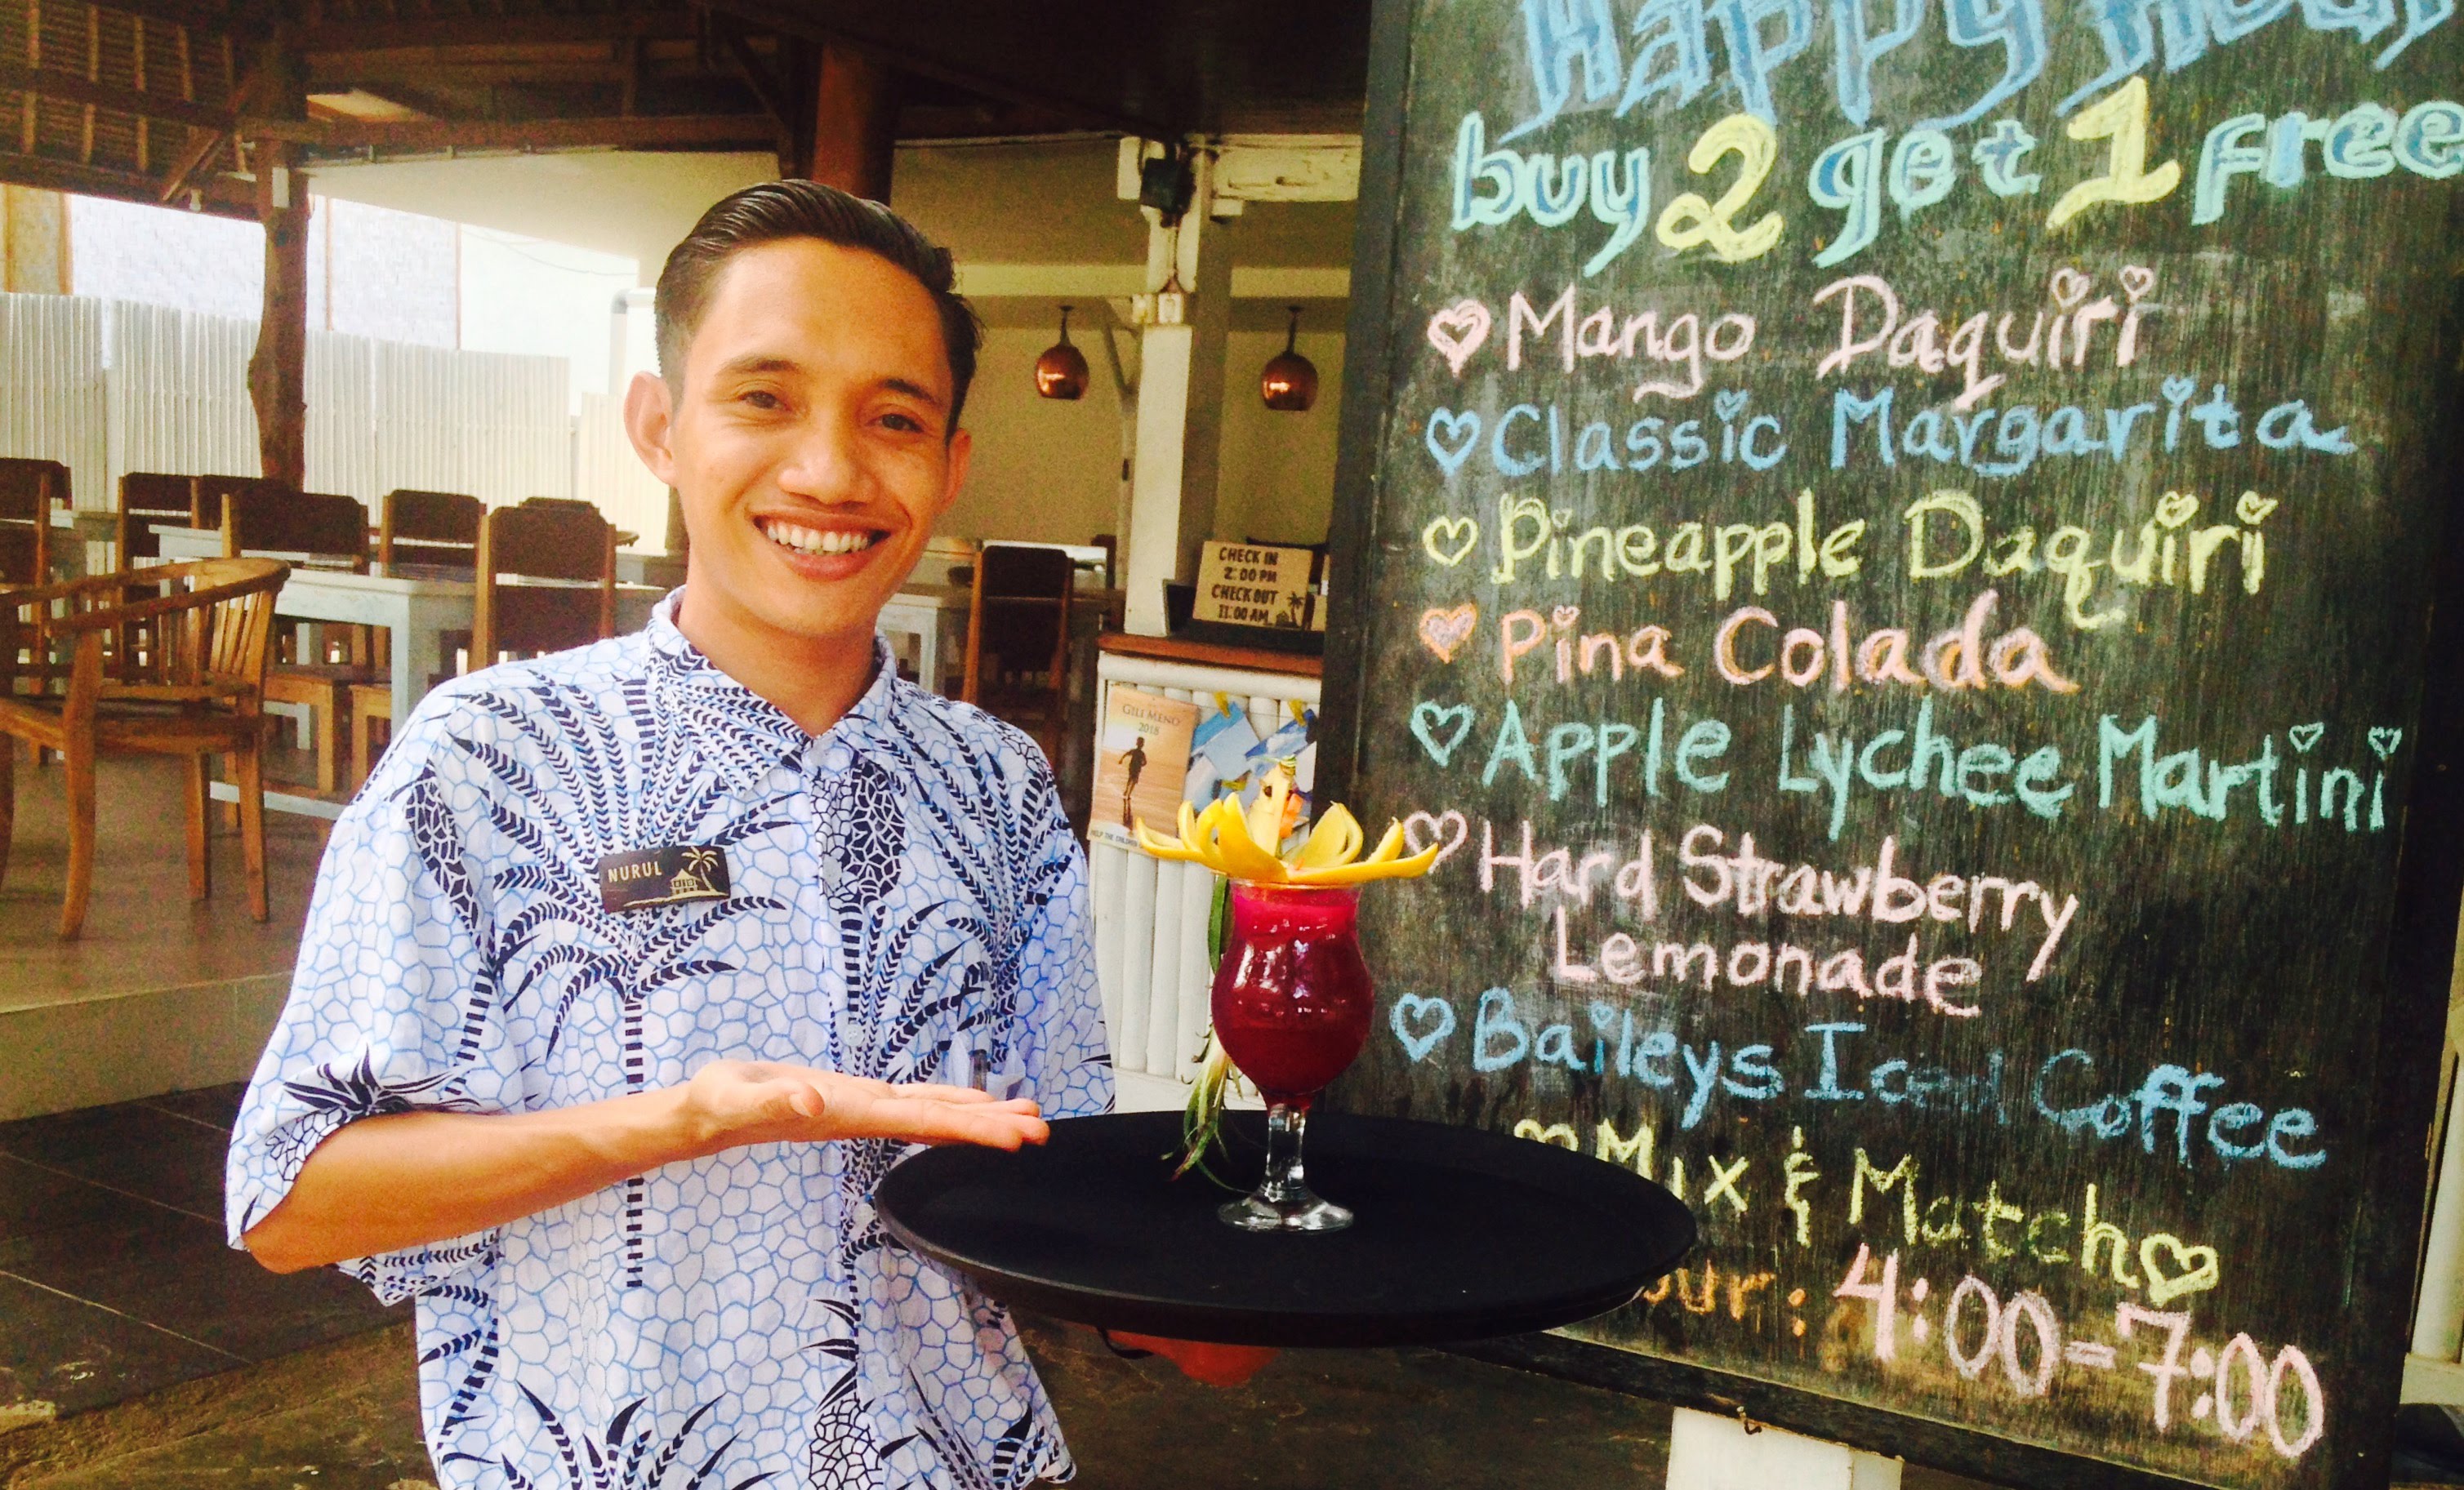 Happy Hour
buy 2 get 1 free
Mango Daquiri
Classic Margarita
Pineapple Daquiri
Pina Colada
Apple Lychee Martini
Hard Strawberry
Lemonade
Baileys Iced Coffee
Mix & Match
our: 4:00-7:00
CHECK IN
2:00 PM
CHECK OUT
11:00 AM
GILI MENO
2018
HELP THE CHILDREN
NURUL